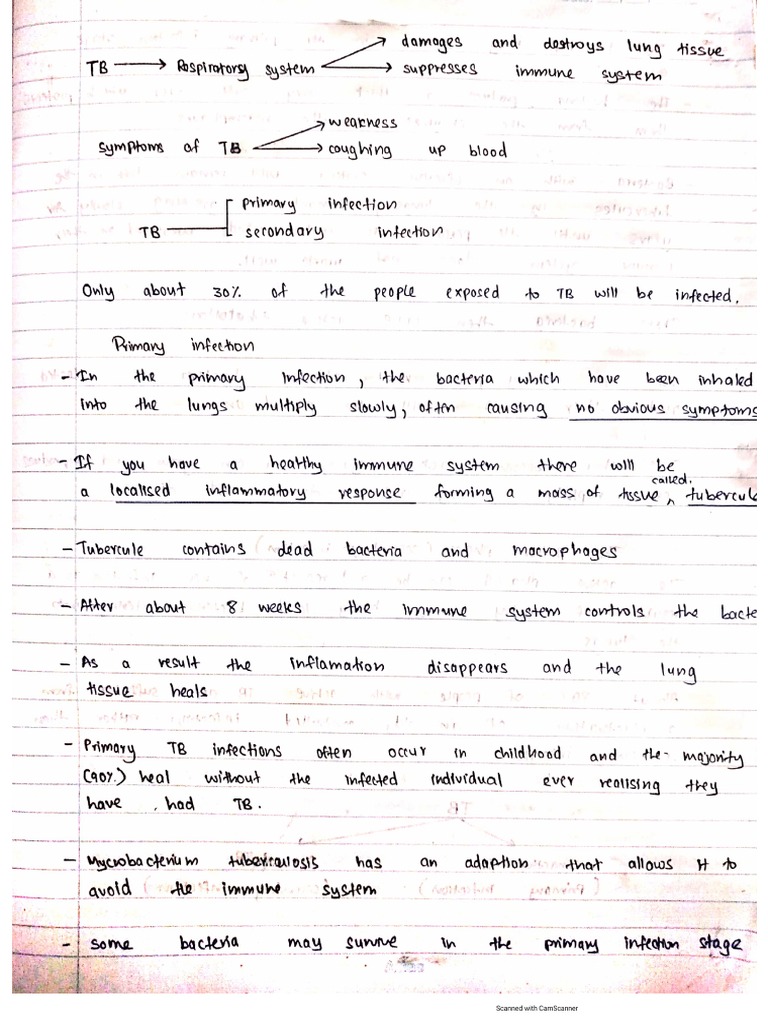 damages and destroys lung tissue
TB → Respiratory system
suppresses immune system
weakness
symptoms of TB → coughing up blood
primary infection
TB
secondary infection
Only about 30% of the people exposed to TB will be infected.
Primary infection
- In the primary infection, the bacteria which have been inhaled
into the lungs multiply slowly, often causing no obvious symptoms
- If you have a healthy immune system there will be
called.
a localised inflammatory response forming a mass of tissue ^ tubercule
- Tubercule contains dead bacteria and macrophages
- After about 8 weeks the immune system controls the bacte
- As a result the inflamation disappears and the lung
tissue heals
- Primary TB infections often occur in childhood and the majority
(90%) heal without the infected individual ever realising they
have had TB.
- Mycrobacterium tuberculosis has an adaption that allows it to
avoid the immune system
- some bacteria may survive in the primary infection stage
Scanned with CamScanner